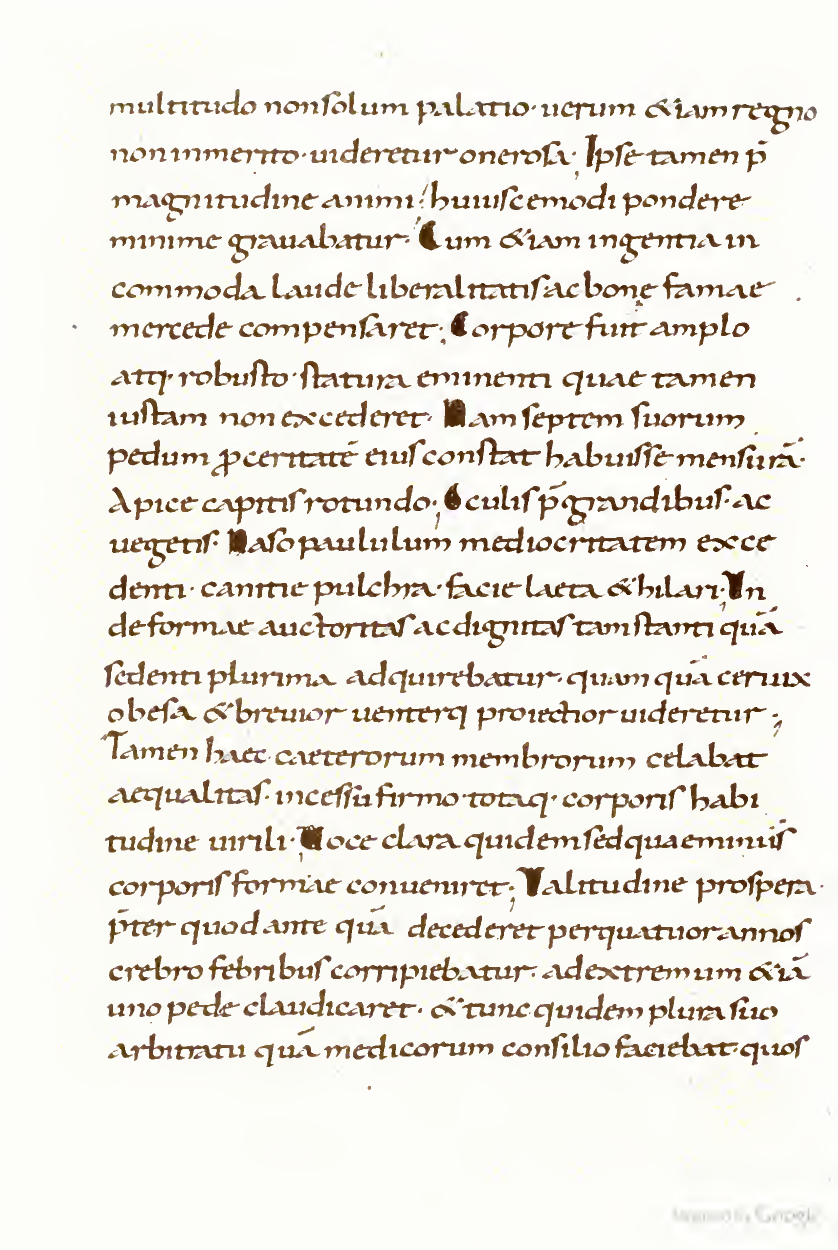 multitudo non solum palatio· uerum &iam regno
non inmerito· uideretur onerosa; Ipse tamen p̄
magnitudine animi huiuscemodi pondere
minime grauabatur· Cum &iam ingentia in
commoda laude liberalitatis ac bonę famae
mercede compensaret; Corpore fuit amplo
atq· robusto· statura eminenti quae tamen
iustam non excederet· Nam septem suorum
pedum ꝓceritatē eius constat habuisse mensurā·
Apice capitis rotundo; Oculis p̄grandibus· ac
uegetis· Naso paululum mediocritatem exce
denti· canitie pulchra· facie laeta & hilari; Vn
de formae auctoritas ac dignitas tam stanti quā
sedenti plurima adquirebatur· quamquā ceruix
obesa & breuior uenterq proiectior uideretur;
Tamen haec caeterorum membrorum celabat
aequalitas· incessu firmo· totaq· corporis habi
tudine uirili; Voce clara quidem sed quae minus
corporis formae conueniret; Valitudine prospera·
p̄ter quod ante quā decederet per quatuor annos
crebro febribus corripiebatur· ad extremum &iā
uno pede claudicaret· & tunc quidem plura suo
arbitratu quā medicorum consilio faciebat· quos